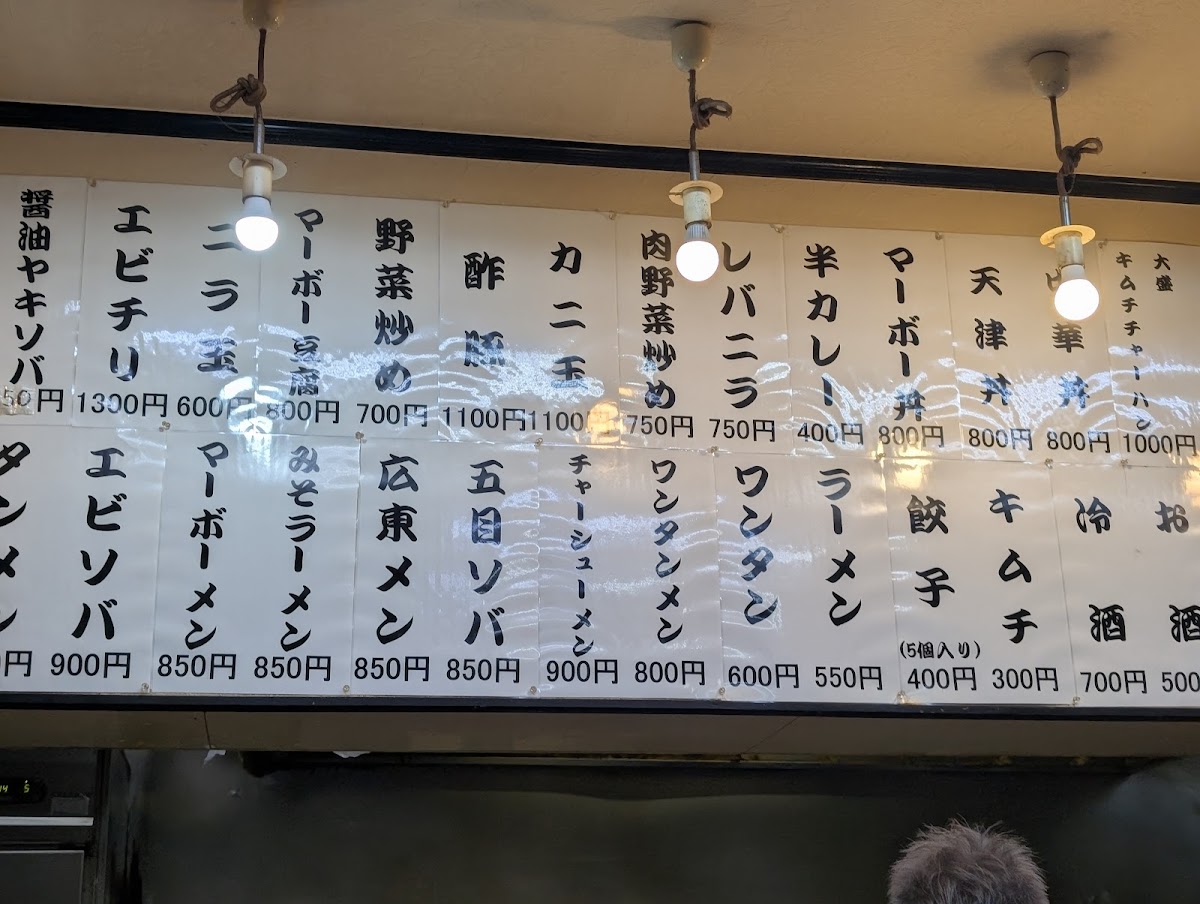 大盛
キムチチャーハン
1000円
中華丼
800円
天津丼
800円
マーボー丼
800円
半カレー
400円
レバニラ
750円
肉野菜炒め
750円
カニ玉
1100
酢豚
1100円
野菜炒め
700円
マーボー豆腐
800円
ニラ玉
600円
エビチリ
1300円
醤油ヤキソバ
50円
お酒
500
冷酒
700円
キムチ
300円
餃子
(5個入り)
400円
ラーメン
550円
ワンタン
600円
ワンタンメン
800円
チャーシューメン
900円
五目ソバ
850円
広東メン
850円
みそラーメン
850円
マーボーメン
850円
エビソバ
900円
タンメン
0円